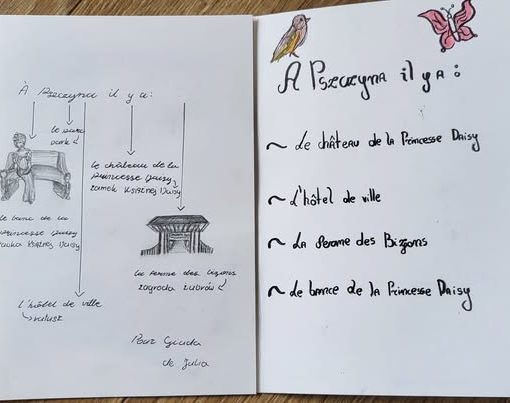 À Pszczyna il y a:
le parc
park
le château de la
princesse Daisy
zamek Księżnej Daisy
le banc de la
princesse Daisy
ławka Księżnej Daisy
la ferme des bizons
zagroda żubrów
l'hôtel de ville
ratusz
Pour
de Julia
À Pszczyna il y a:
~ Le château de la Princesse Daisy
~ L'hôtel de ville
~ La ferame des Bizons
~ Le bance de la Princesse Daisy